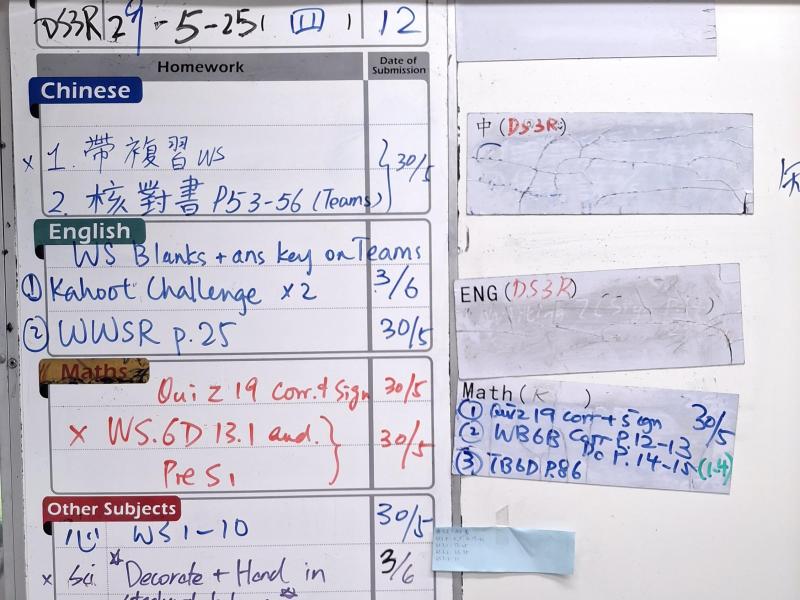 DS3R 29-5-25 (四) 12
Homework Date of Submission
Chinese
x 1. 帶複習WS } 30/5
2. 核對書 P53-56 (Teams)
English
WS Blanks + ans key on Teams
① Kahoot Challenge x2 3/6
② WWSR p.25 30/5
Maths
Quiz 19 corr. + sign 30/5
x WS.6D 13.1 and. } 30/5
Pre S1
Other Subjects
心 WS 1-10 30/5
x Sci *Decorate + Hand in 3/6
中(DS3R)
ENG(DS3R)
Math(K )
① Quiz 19 corr + sign 30/5
② WB6B Corr P.12-13
Do P.14-15 (1-4)
③ TB6D P.86